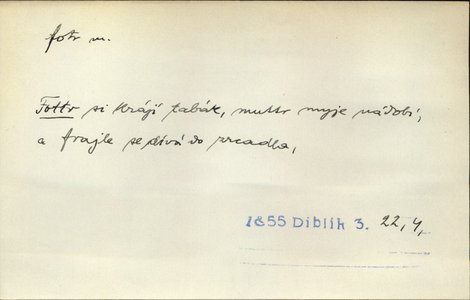 fotr m.
Fottr si krájí tabák, muttr myje nádobí,
a frajle se dívá do zrcadla,
1855 Diblík 3. 22, 4,